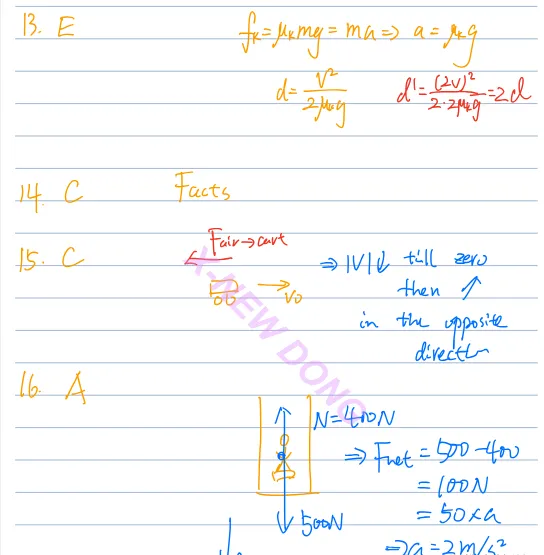 13. E
fk=μkmg=ma⇒ a=μkg
d=V²/2μkg
d'=(2V)²/2·2μkg=2d
14. C Facts
15. C
Fair→cart
V0
⇒ |V|↓ till zero
then ↗
in the opposite
direction
X-NEW DONG
16. A
N=400N
500N
⇒ Fnet=500-400
=100N
=50×a
⇒a=2m/s²